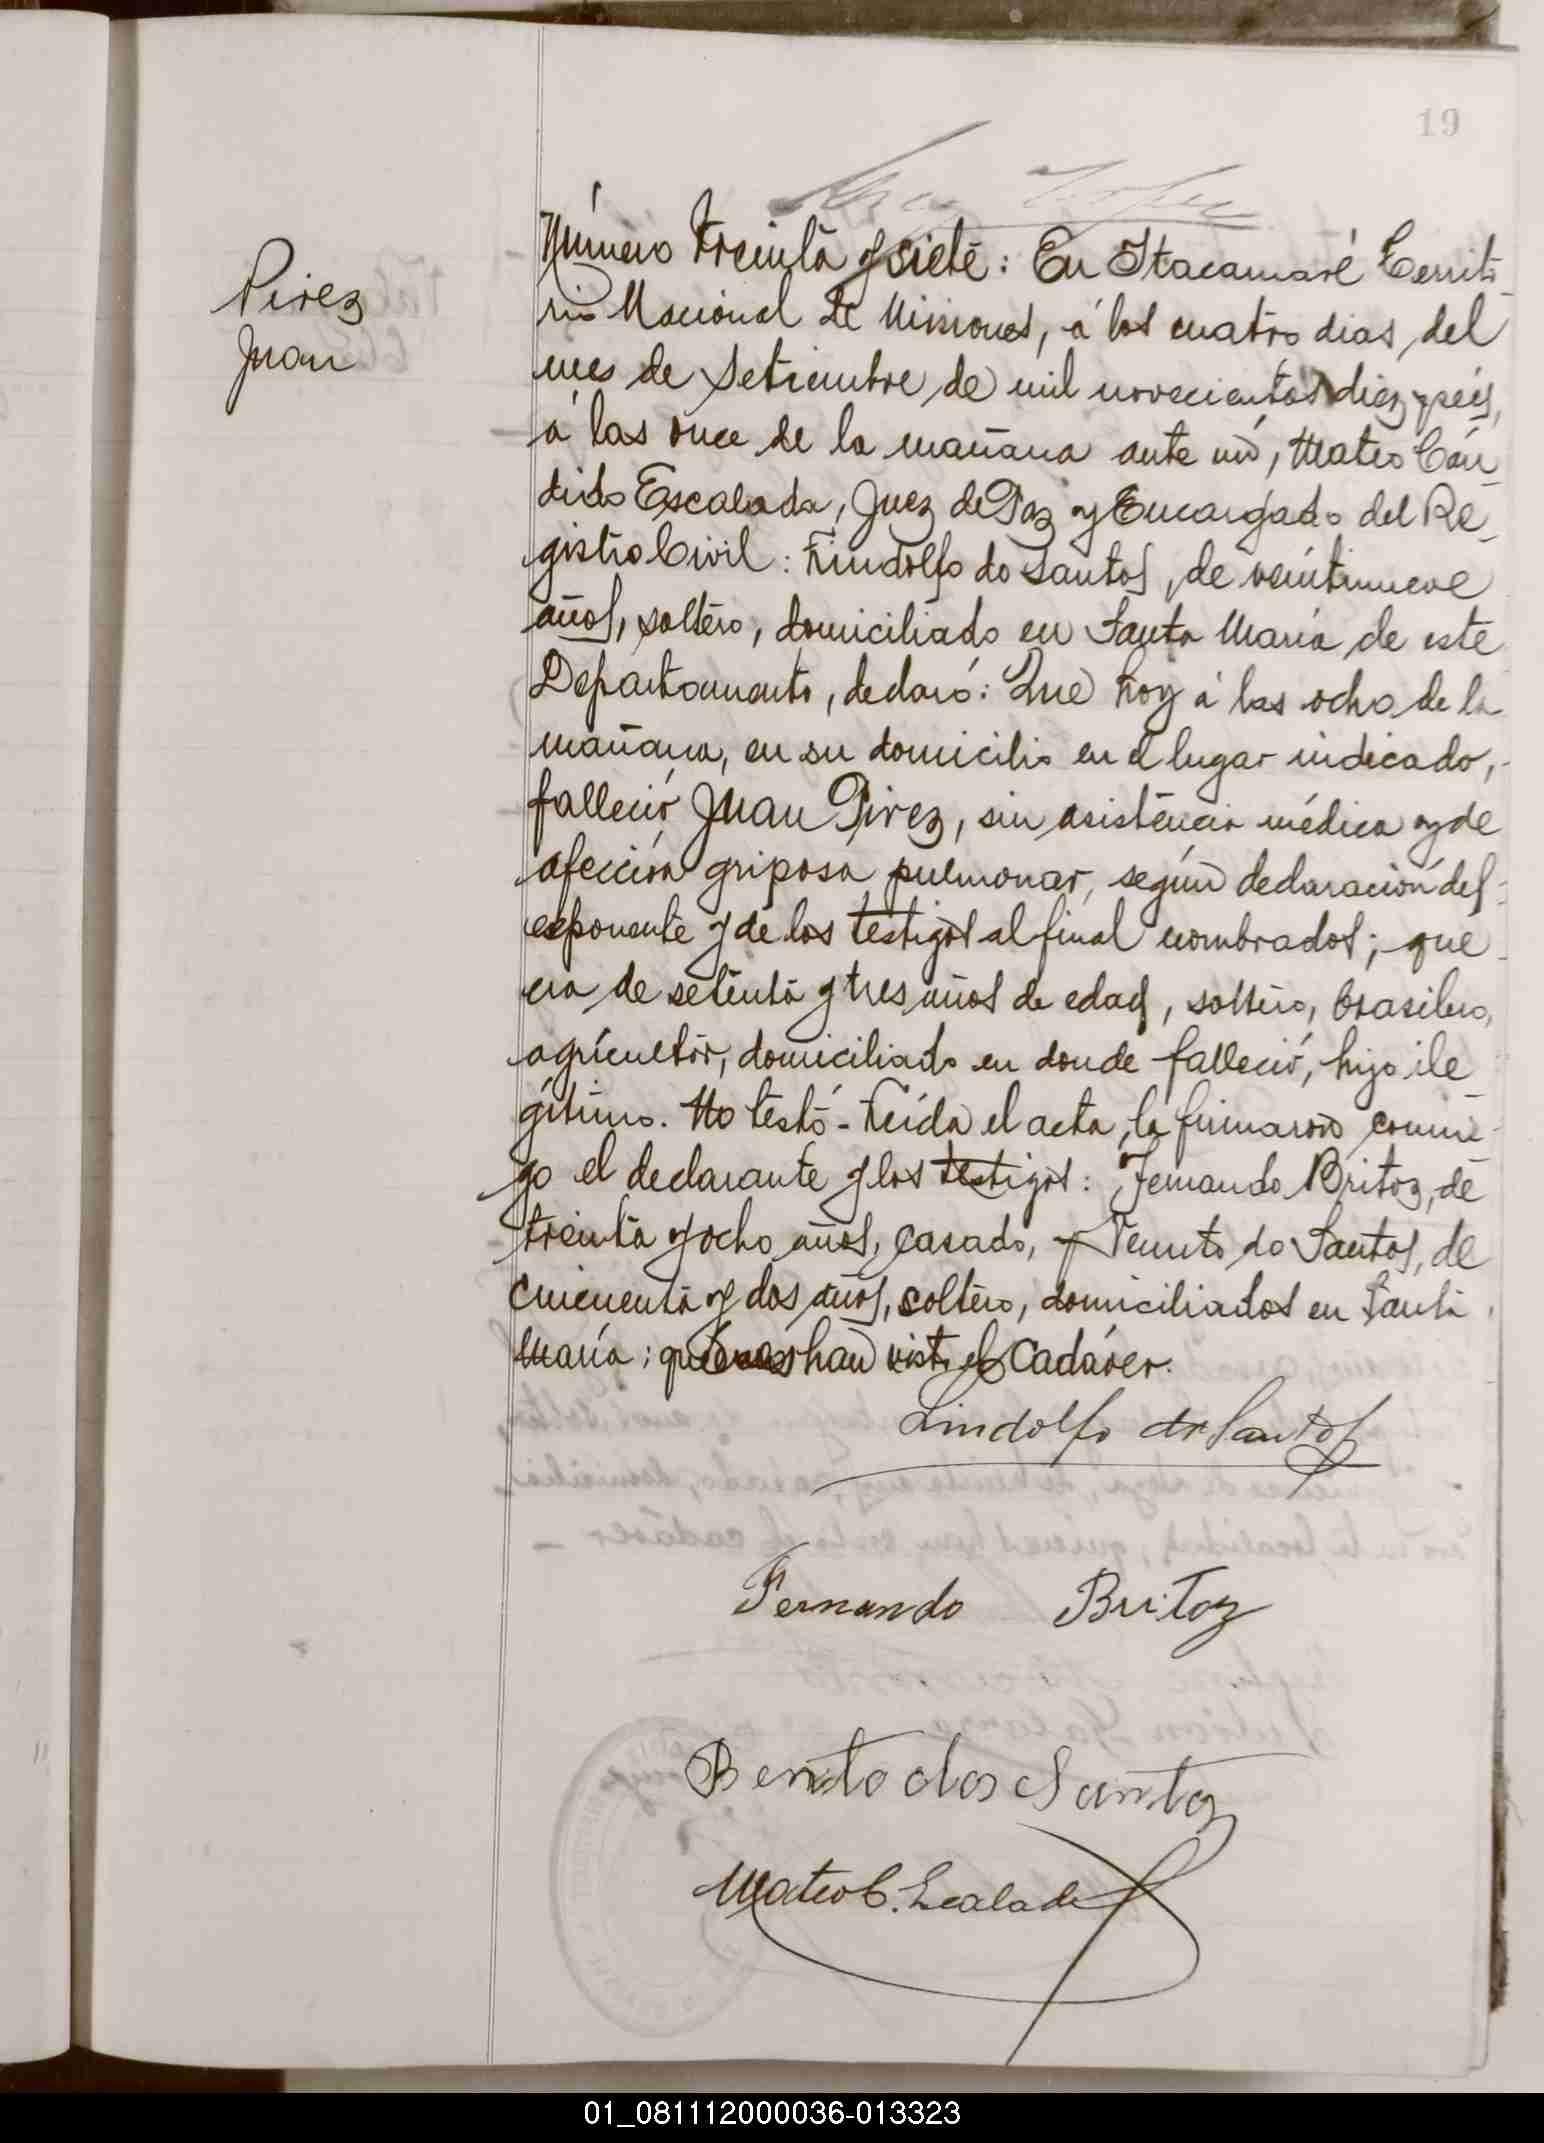 19
Pirez
Juan
Número treinta y siete: En Itacaruaré Territo-
rio Nacional de Misiones, á los cuatro dias, del
mes de Setiembre de mil novecientos diez y seis,
á las once de la mañana ante mí, Mateo Cán-
dido Escalada, Juez de Paz y Encargado del Re-
gistro Civil: Lindolfo do Santos, de veintinueve
años, soltero, domiciliado en Santa María de este
Departamento, declaró: Que hoy á las ocho de la
mañana, en su domicilio en el lugar indicado,
falleció Juan Pirez, sin asistencia médica y de
afección griposa pulmonar, según declaración del
exponente y de los testigos al final nombrados; que
era de setenta y tres años de edad, soltero, brasilero,
agricultor, domiciliado en donde falleció, hijo ile-
gítimo. No testó - Leída el acta, la firmaron conmi-
go el declarante y los testigos: Fernando Britoz, de
treinta y ocho años, casado, y Venuto do Santos, de
cincuenta y dos años, soltero, domiciliados en Santa
María; quienes han visto el cadáver.
Lindolfo do Santos
Fernando Britoz
Bento dos Santoz
Mateo C. Escalada
01_081112000036-013323